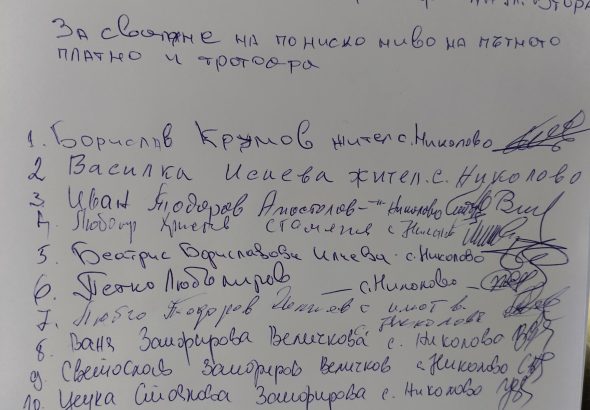 ЗА сваляне на по ниско ниво на пътното
платно и тротоара
1. Борислав Крумов жител с. Николово
2 Василка Исаева жител. с. Николово
3. Иван Тодоров Апостолов - " Николово
4. Любомир Стоянов с. Николово
5. Беатрис Бориславова Илиева - с. Николово
6. Петко Любомиров - с. Николово
7. Тодоров с имот в
с. Николово
8. Ваня Замфирова Величкова с. Николово
9. Светослав Замфиров Величков с. Николово
10. Цецка Стоянова Замфирова с. Николово